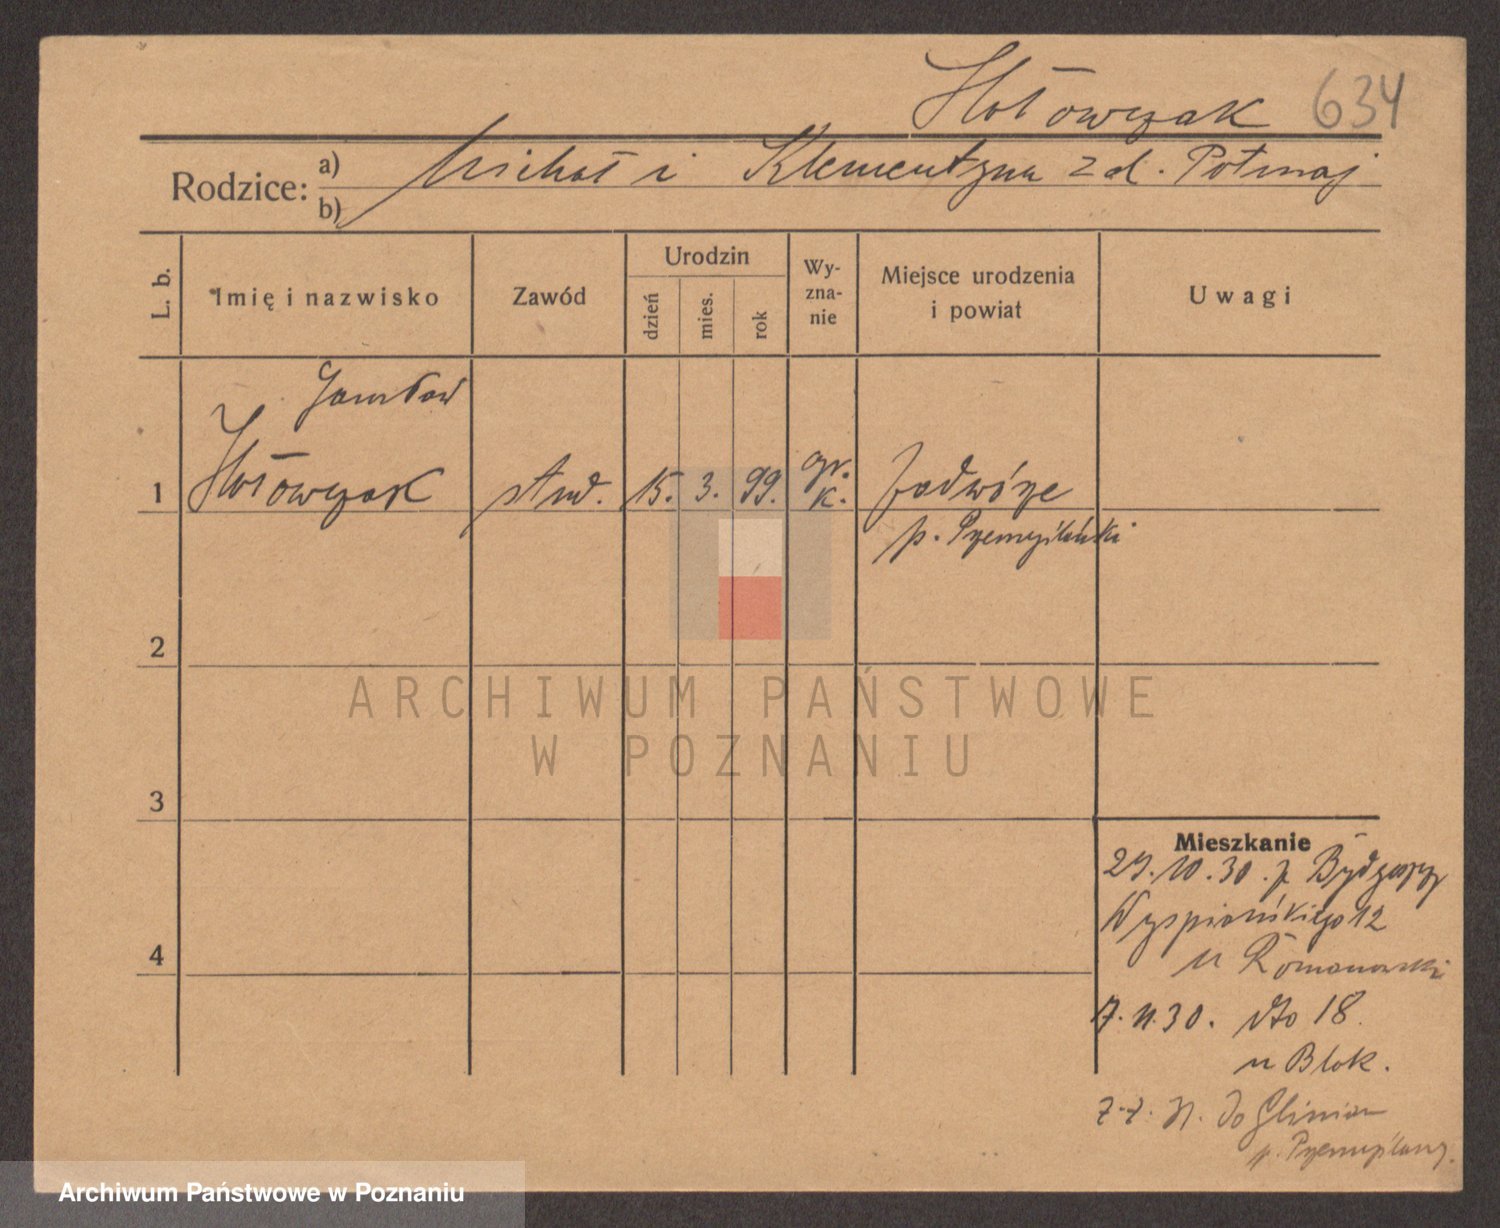 Hołowczak 634
Rodzice: a) Michał i Klementyna z d. Potmaj
b)
L. b.
Imię i nazwisko
Zawód
Urodzin
dzień
mies.
rok
Wy-
zna-
nie
Miejsce urodzenia
i powiat
Uwagi
Jarosław
1 Hołowczak stud. 15. 3. 99. gr. k. Zadwórze
p. Przemyślański
2
3
4
Mieszkanie
29.10.30. z Bydgoszczy
Wyspiańskiego 12
u Romanowski
7.11.30. dto 18.
u Blok.
do Glinian
p. Przemyślany.
ARCHIWUM PAŃSTWOWE
W POZNANIU
Archiwum Państwowe w Poznaniu